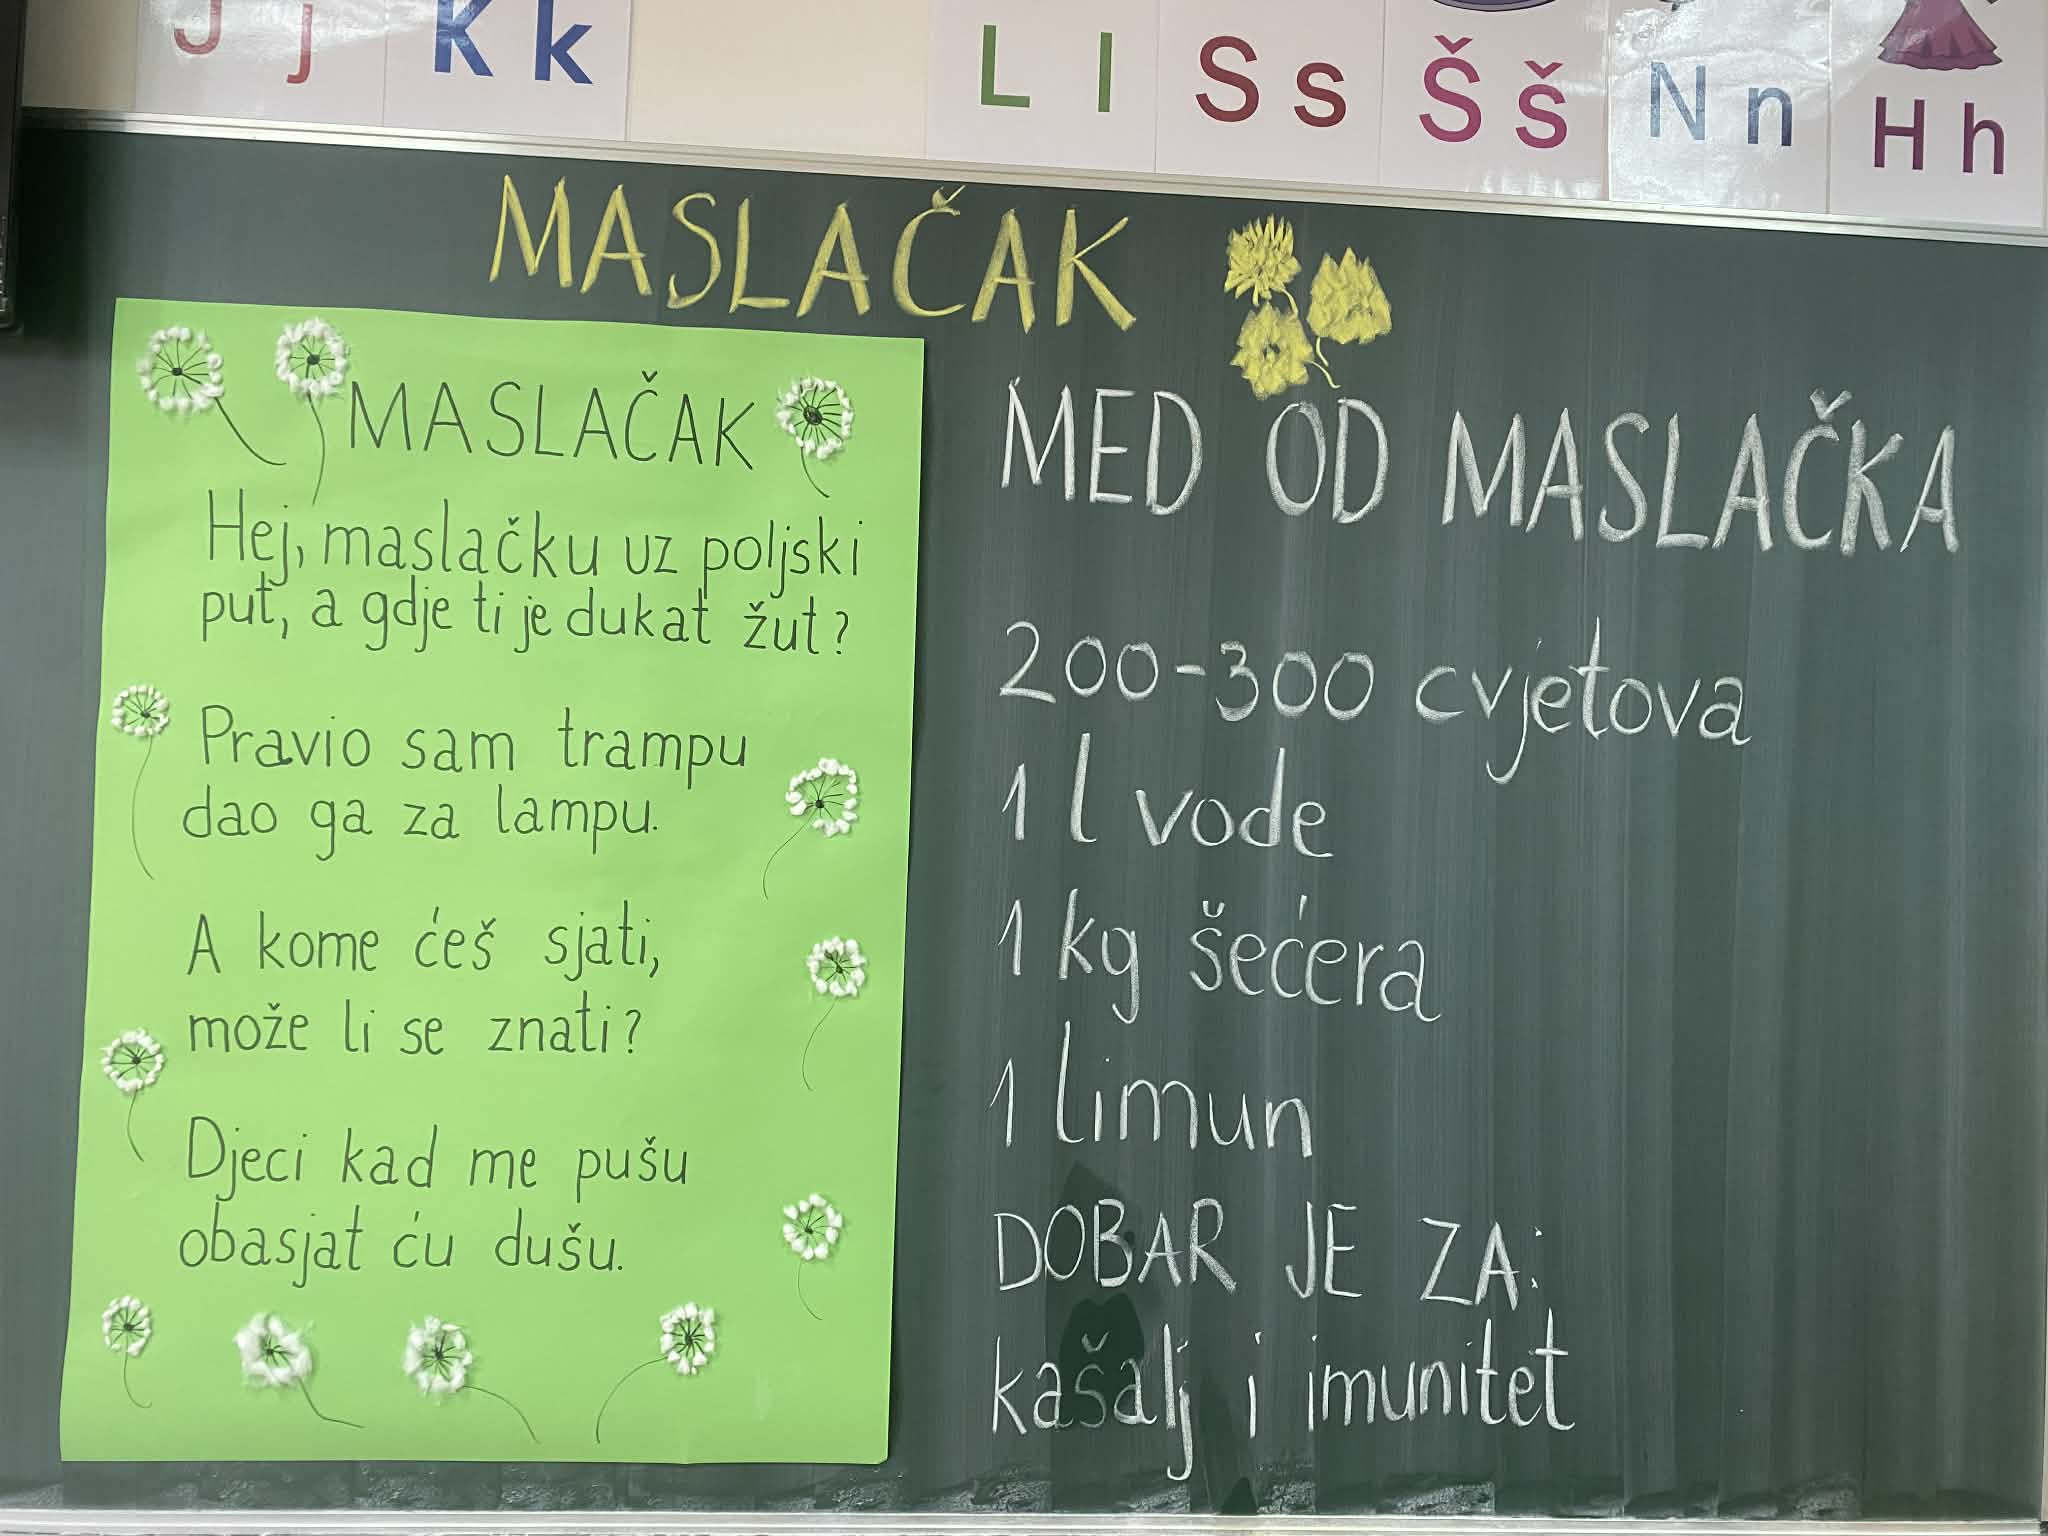 J j
K k
L l
S s
Š š
N n
H h
MASLAČAK
MASLAČAK
Hej, maslačku uz poljski
put, a gdje ti je dukat žut?
Pravio sam trampu
dao ga za lampu.
A kome ćeš sjati,
može li se znati?
Djeci kad me pušu
obasjat ću dušu.
MED OD MASLAČKA
200-300 cvjetova
1 l vode
1 kg šećera
1 limun
DOBAR JE ZA:
kašalj i imunitet